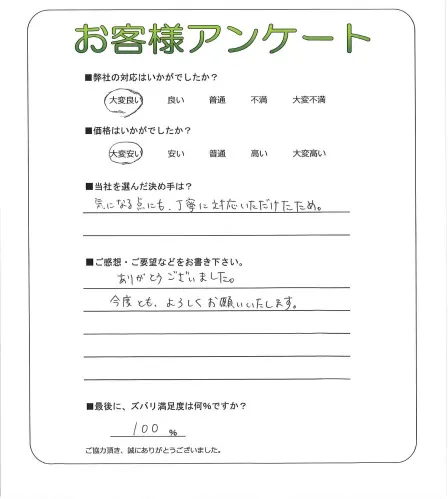 お客様アンケート
■弊社の対応はいかがでしたか？
大変良い 良い 普通 不満 大変不満
■価格はいかがでしたか？
大変安い 安い 普通 高い 大変高い
■当社を選んだ決め手は？
気になる点にも、丁寧に対応いただけたため。
■ご感想・ご要望などをお書き下さい。
ありがとうございました。
今度とも、よろしくお願いいたします。
■最後に、ズバリ満足度は何%ですか？
100 %
ご協力頂き、誠にありがとうございました。